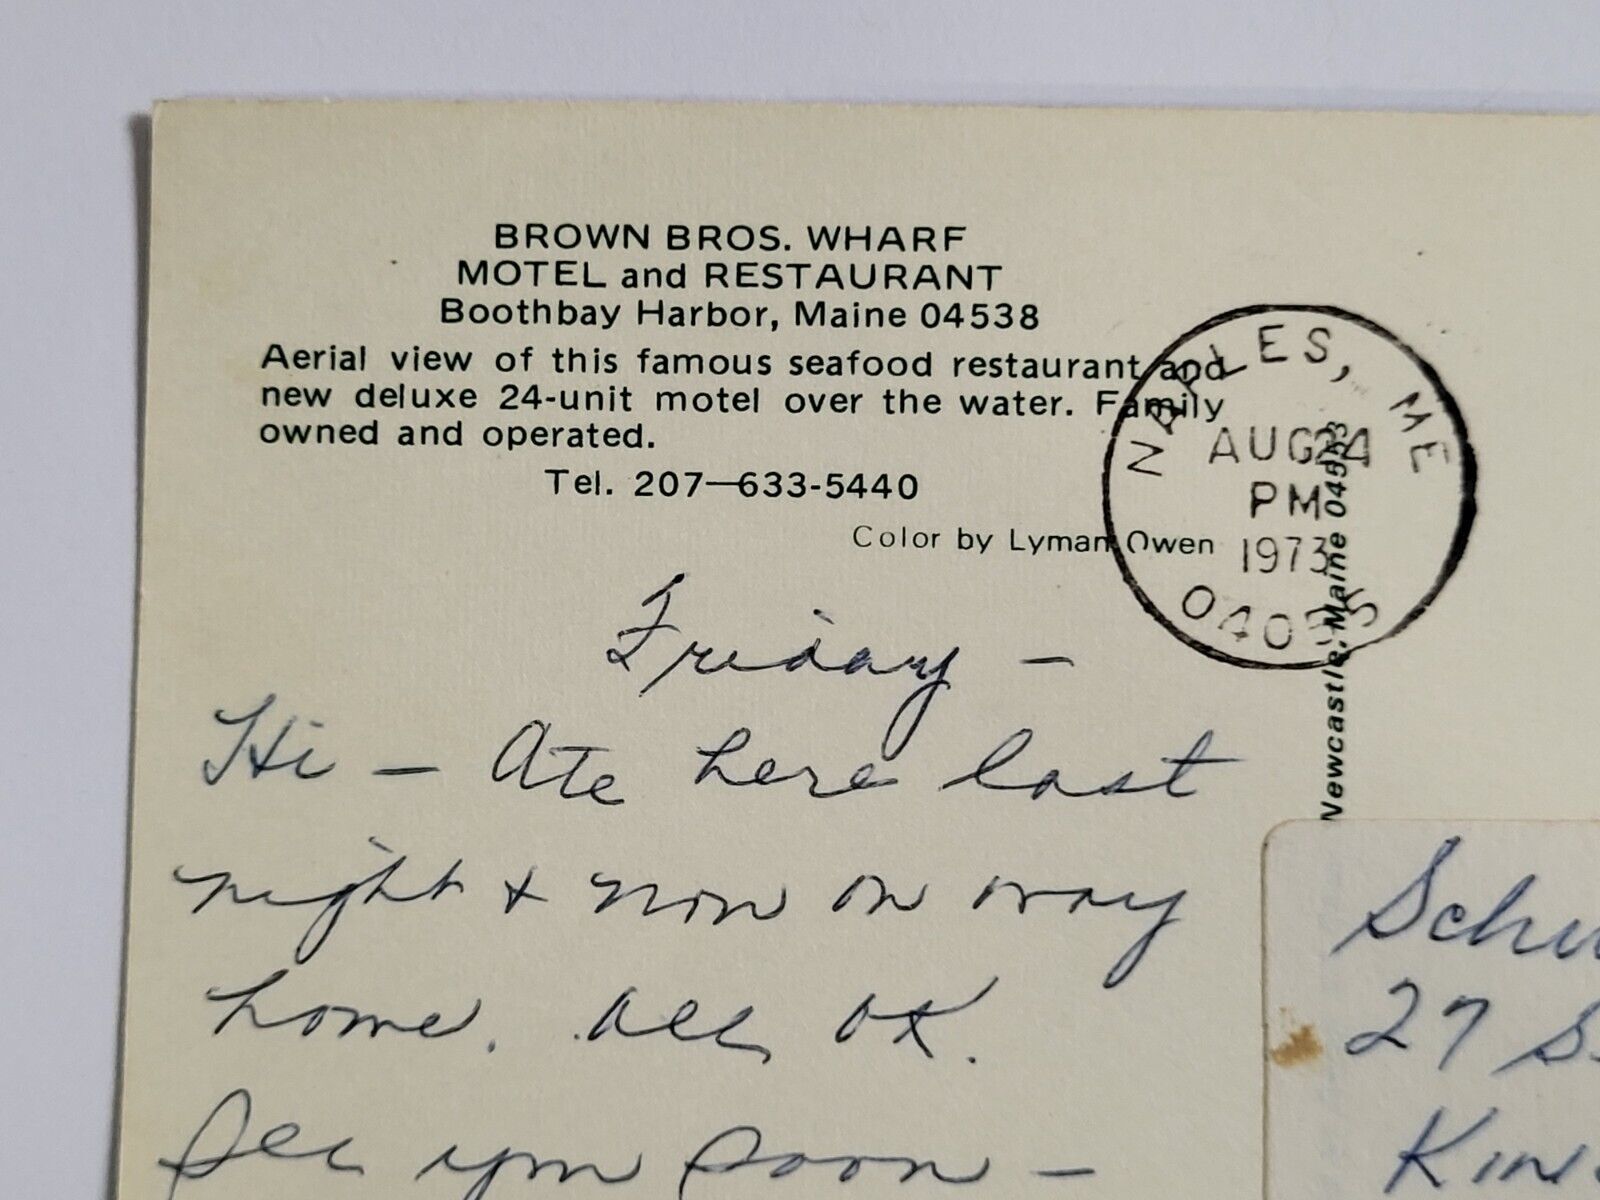 BROWN BROS. WHARF
MOTEL and RESTAURANT
Boothbay Harbor, Maine 04538
Aerial view of this famous seafood restaurant and
new deluxe 24-unit motel over the water. Family
owned and operated.
Tel. 207—633-5440
Color by Lyman Owen
NAPLES, ME
AUG 24
PM
1973
04055
Newcastle, Maine 04553
Friday -
Hi - Ate here last
night + now on way
home. All OK.
See you soon -
27